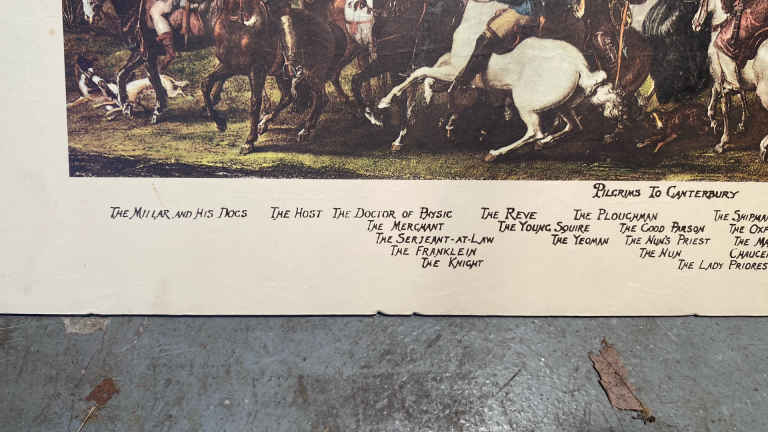 PILGRIMS TO CANTERBURY
THE MILLAR AND HIS DOGS THE HOST THE DOCTOR OF PHYSIC THE REVE THE PLOUGHMAN THE
THE MERCHANT THE YOUNG SQUIRE THE GOOD PARSON THE
THE SERJEANT-AT-LAW THE YEOMAN THE NUN'S PRIEST THE
THE FRANKLEIN THE NUN
THE KNIGHT THE LADY